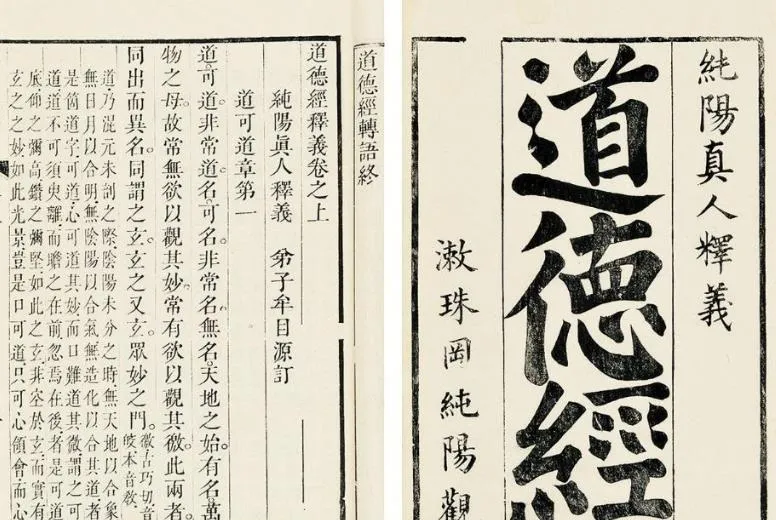 純陽真人釋義
道德經
漱珠岡純陽觀
道德經轉語終
道德經釋義卷之上
純陽眞人釋義　弟子牟目源訂
道可道章第一
道可道。非常道。名可名。非常名。無名天地之始。有名萬
物之母。故常無欲以觀其妙。常有欲以觀其徼。此兩者。
同出而異名。同謂之玄。玄之又玄。眾妙之門。
徼古巧切音
皎本音敎
道乃混元未剖之際陰陽未分之時無天地以合象
無日月以合明無陰陽以合氣無造化以合其道者
是箇道字可道心可道其妙而口難道其微謂之可
道道不可須臾離而瞻之在前忽焉在後者是可道
底仰之彌高鑽之彌堅如此之玄非空於玄而實有
玄之之妙如此光景豈是口可道只可心領會而心